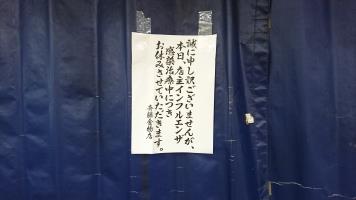 誠に申し訳ございませんが、
本日、店主インフルエンザ
感染治療中につき
お休みさせていただきます。
斉藤金物店